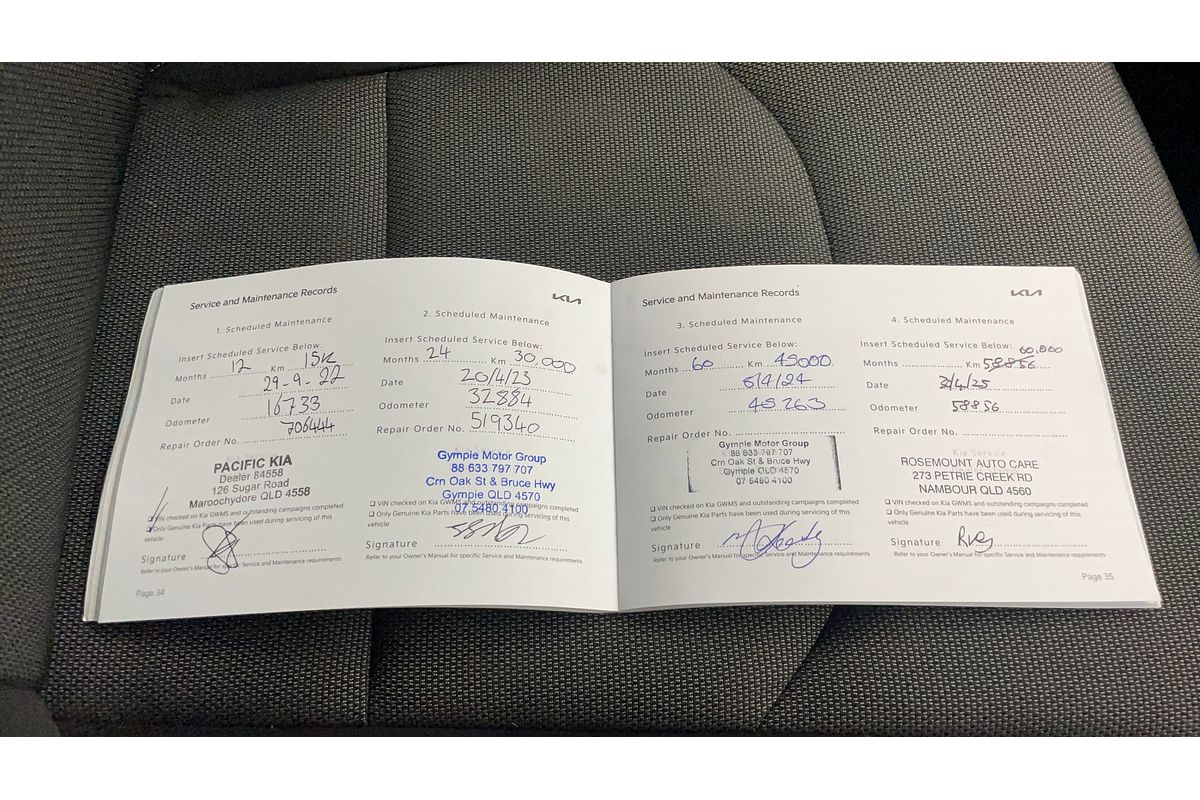 Service and Maintenance Records
KIA
1. Scheduled Maintenance
Insert Scheduled Service Below:
Months 12 Km 15K
Date 29-9-22
Odometer 16733
Repair Order No. 706444
PACIFIC KIA
Dealer 84558
126 Sugar Road
Maroochydore QLD 4558
VIN checked on Kia GWMS and outstanding campaigns completed
Only Genuine Kia Parts have been used during servicing of this
vehicle
Signature
Refer to your Owner's Manual for specific Service and Maintenance requirements
2. Scheduled Maintenance
Insert Scheduled Service Below:
Months 24 Km 30,000
Date 20/4/23
Odometer 32884
Repair Order No. 519340
Gympie Motor Group
88 633 797 707
Crn Oak St & Bruce Hwy
Gympie QLD 4570
07 5480 4100
VIN checked on Kia GWMS and outstanding campaigns completed
Only Genuine Kia Parts have been used during servicing of this
vehicle
Signature
Refer to your Owner's Manual for specific Service and Maintenance requirements
Page 34
Service and Maintenance Records
KIA
3. Scheduled Maintenance
Insert Scheduled Service Below:
Months 60 Km 45000
Date 5/4/24
Odometer 45263
Repair Order No.
Gympie Motor Group
88 633 797 707
Crn Oak St & Bruce Hwy
Gympie QLD 4570
07 5480 4100
VIN checked on Kia GWMS and outstanding campaigns completed
Only Genuine Kia Parts have been used during servicing of this
vehicle
Signature
Refer to your Owner's Manual for specific Service and Maintenance requirements
4. Scheduled Maintenance
Insert Scheduled Service Below:
60,000
Months Km 58856
Date 3/4/25
Odometer 58856
Repair Order No.
Kia Service
ROSEMOUNT AUTO CARE
273 PETRIE CREEK RD
NAMBOUR QLD 4560
VIN checked on Kia GWMS and outstanding campaigns completed
Only Genuine Kia Parts have been used during servicing of this
vehicle
Signature
Refer to your Owner's Manual for specific Service and Maintenance requirements
Page 35